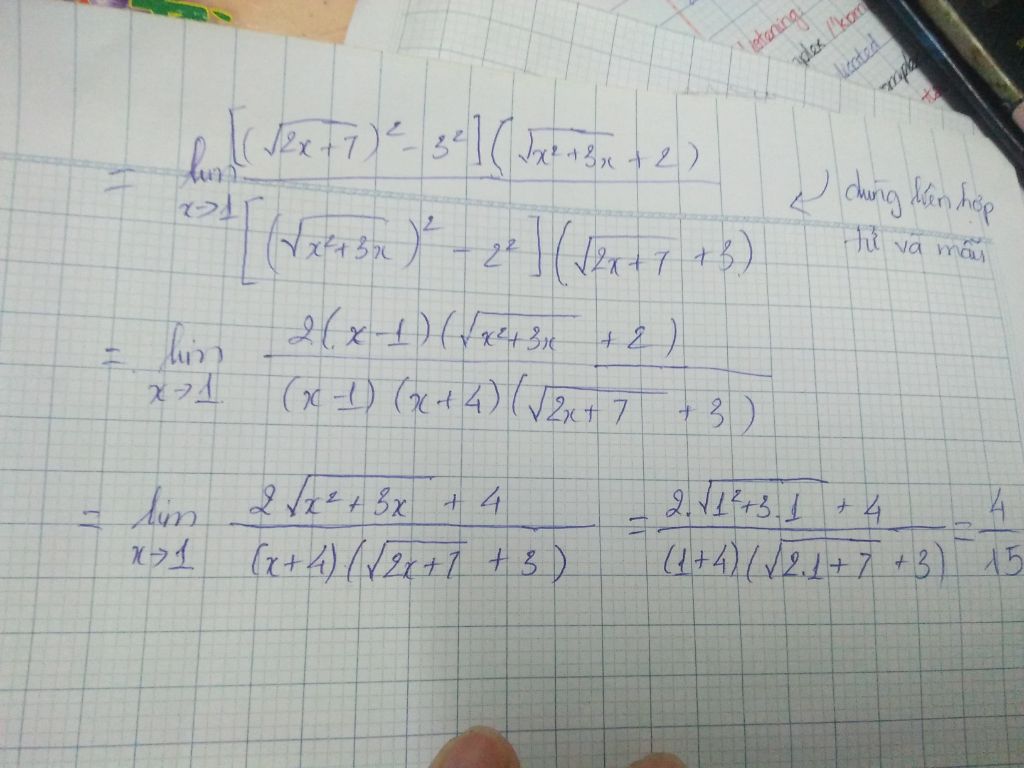 Listening:
= lim x→1 [(√(2x+7))² - 3²](√(x²+3x) + 2) / [(√(x²+3x))² - 2²](√(2x+7) + 3)
dùng liên hợp
tử và mẫu
= lim x→1 2(x-1)(√(x²+3x) + 2) / (x-1)(x+4)(√(2x+7) + 3)
= lim x→1 2√(x²+3x) + 4 / (x+4)(√(2x+7) + 3) = 2.√(1²+3.1) + 4 / (1+4)(√(2.1+7) + 3) = 4/15